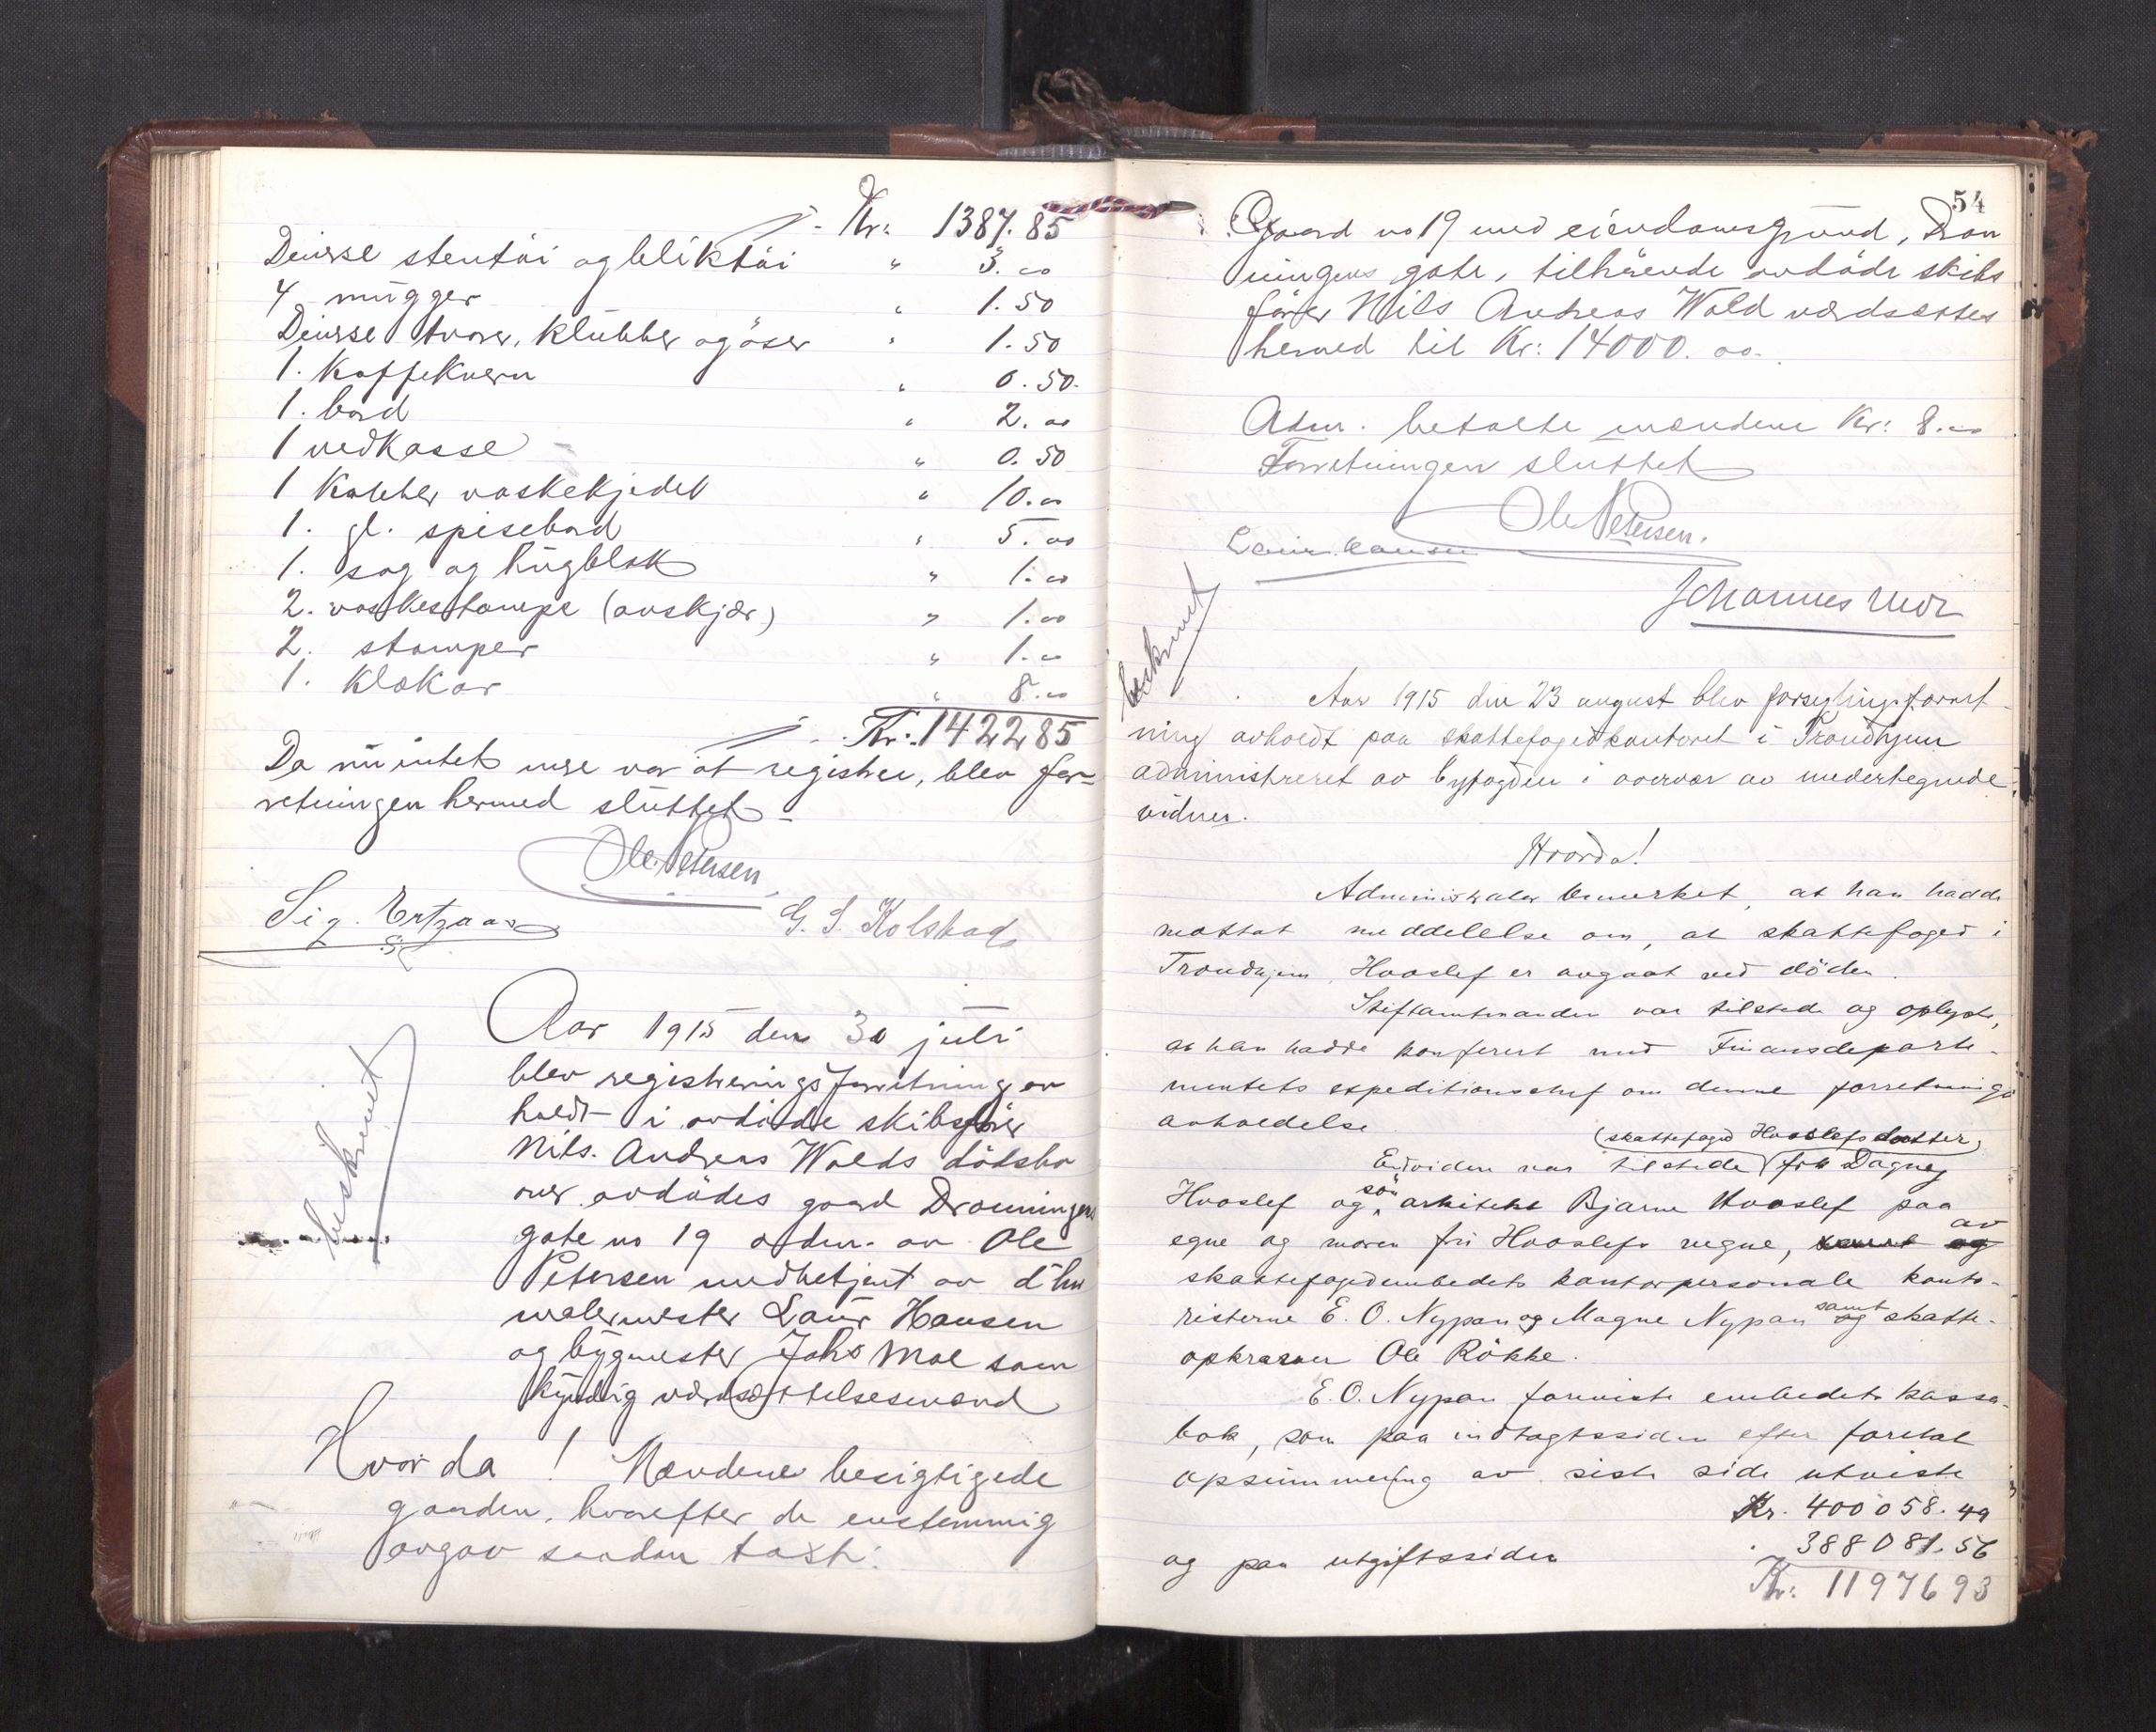 Kr: 1387.85
Diverse stentöi og bliktöi " 3.00
4 mugger " 1.50
Diverse tvarer, klubber og öser " 1.50
1. Kaffekvern " 0.50
1. bord " 2.00
1 vedkasse " 0.50
1 Kobber vaskekjedel " 10.00
1. gl. spisebord " 5.00
1. sag og hugblok " 1.00
2. vaskestampe (avskjær) " 1.00
2. stamper " 1.00
1. Klokar " 8.00
Kr: 1422 85
Da nu intet mere var at registrere, blev for-
retningen hermed sluttet
Ole Petersen
Sig. Ertzaas
G. S. Kolstad
Aar 1915 den 30 juli
blev registreringsforretning av
holdt i avdöde skibsförer
Nils. Andreas Wolds dödsbo
over avdödes gaard Dronningens
gate no 19 adm. av Ole
Petersen medbetjent av d'hrr
malermester Laur Hansen
og bygmester Johs Moe som
kyndig værdsættelsesmænd
beskrevet
Hvorda! Mændene besigtigede
gaarden, hvorefter de enstemmig
avgav saadan taxt:
54
Gaard no 19 med eiendomsgrund, Dron
ningens gate, tilhörende avdöde skibs
förer Nils Andreas Wold værdsættes
herved til Kr: 14000.00.
Adm. betalte mændene Kr: 8.00
Forretningen sluttet
Ole Petersen.
Laur. Hansen
Johannes Moe
beskrevet
Aar 1915 den 23 august blev forseglingsforret-
ning avholdt paa skattefogedkontoret i Trondhjem
administreret av byfogden i overvær av undertegnede
vidner.
Hvorda!
Administrator bemerket, at han hadde
mottat meddelelse om, at skattefoged i
Trondhjem, Hvoslef er avgaat ved döden.
Stiftamtmanden var tilstede og oplyste,
at han hadde konferert med Finansdeparte-
mentets expeditionschef om denne forretnings
avholdelse
(skattefoged Hvoslefs datter)
Endvidere var tilstede frk Dagny
Hvoslef og sön arkitekt Bjarne Hvoslef paa
egne og moren fru Hvoslefs vegne, av
skattefogedembedets kontorpersonale konto-
risterne E. O. Nypan og Magne Nypan samt skatte-
opkræver Ole Rökke.
E. O. Nypan foreviste embedets kassa-
bok, som paa indtægtssiden efter foretat
opsummering av siste side utviste
Kr. 400 058.49
og paa utgiftssiden . 388 081.56
Kr: 11976 93